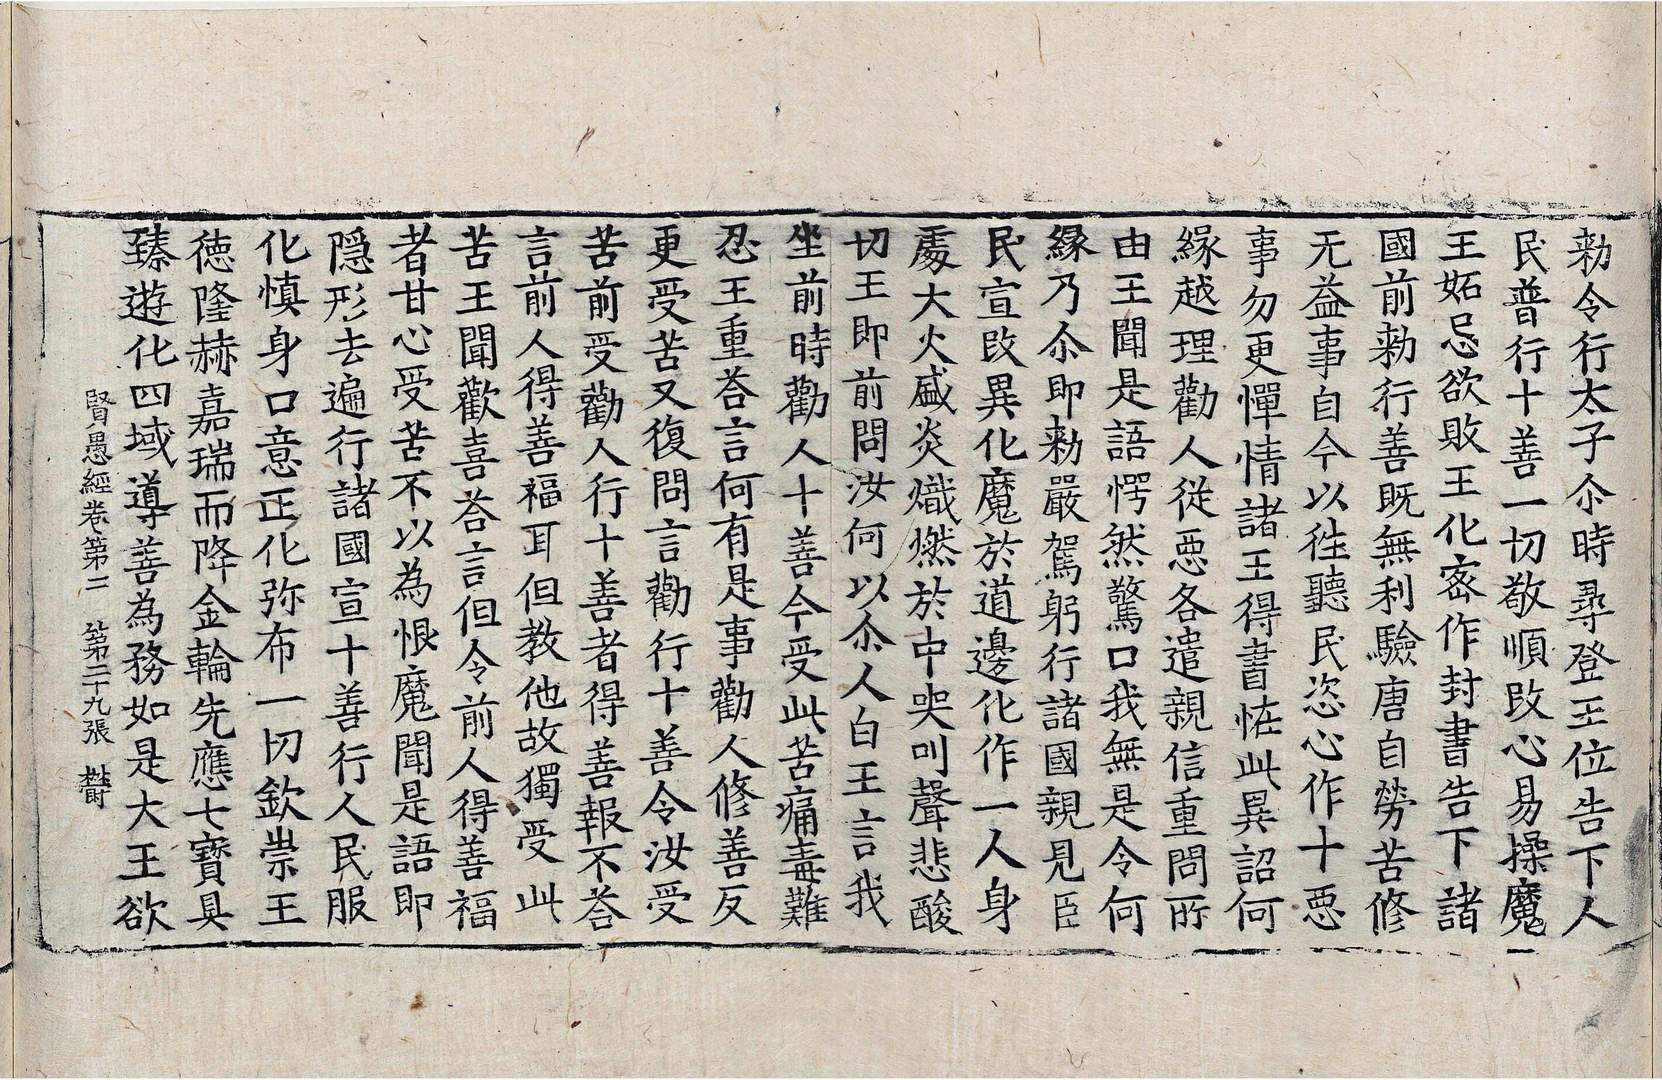 勑令行太子尒時尋登王位告下人
民普行十善一切敬順改心易操魔
王妬忌欲敗王化密作封書告下諸
國前勑行善既無利驗唐自勞苦修
无益事自今以徃聽民恣心作十惡
事勿更憚情諸王得書恠此異詔何
緣越理勸人從惡各遣親信重問所
由王聞是語愕然驚曰我無是令何
緣乃尒即勑嚴駕躬行諸國親見臣
民宣改異化魔於道邊化作一人身
處大火盛炎熾燃於中哭叫聲悲酸
切王即前問汝何以尒人白王言我
坐前時勸人十善今受此苦痛毒難
忍王重荅言何有是事勸人修善反
更受苦又復問言勸行十善令汝受
苦前受勸人行十善者得善報不荅
言前人得善福耳但教他故獨受此
苦王聞歡喜荅言但令前人得善福
者甘心受苦不以為恨魔聞是語即
隱形去遍行諸國宣十善行人民服
化慎身口意正化弥布一切欽崇王
德隆赫嘉瑞而降金輪先應七寶具
臻遊化四域導善為務如是大王欲
賢愚經卷第二 第二十九張 欝